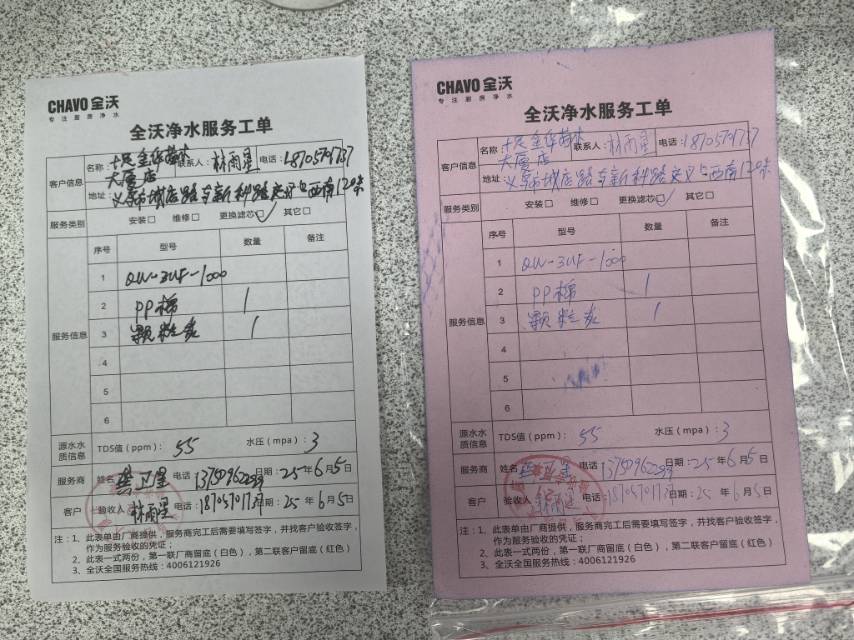 CHAVO 全沃
专注厨房净水
全沃净水服务工单
客户信息
名称：十足金华苗木 联系人：林雨星 电话：
大厦店
地址：义乌市城店路与新科路交叉口西南120米
服务类别 安装□ 维修□ 更换滤芯☑ 其它□
服务信息
序号 型号 数量 备注
1 QW-3UF-1000
2 PP棉 1
3 颗粒炭 1
4
5
6
源水水质信息 TDS值（ppm）：55 水压（mpa）：3
服务商 姓名 龚卫星 电话 日期：25年6月5日
客户 验收人 林雨星 电话：日期：25年6月5日
注：1、此表单由厂商提供，服务商完工后需要填写签字，并找客户验收签字，
作为服务验收的凭证；
2、此表一式两份，第一联厂商留底（白色），第二联客户留底（红色）
3、全沃全国服务热线：4006121926
CHAVO 全沃
专注厨房净水
全沃净水服务工单
客户信息
名称：十足金华苗木 联系人：林雨星 电话：
大厦店
地址：义乌市城店路与新科路交叉口西南120米
服务类别 安装□ 维修□ 更换滤芯☑ 其它□
服务信息
序号 型号 数量 备注
1 QW-3UF-1000
2 PP棉 1
3 颗粒炭 1
4
5
6
源水水质信息 TDS值（ppm）：55 水压（mpa）：3
服务商 姓名 龚卫星 电话 日期：25年6月5日
客户 验收人 林雨星 电话：日期：25年6月5日
注：1、此表单由厂商提供，服务商完工后需要填写签字，并找客户验收签字，
作为服务验收的凭证；
2、此表一式两份，第一联厂商留底（白色），第二联客户留底（红色）
3、全沃全国服务热线：4006121926